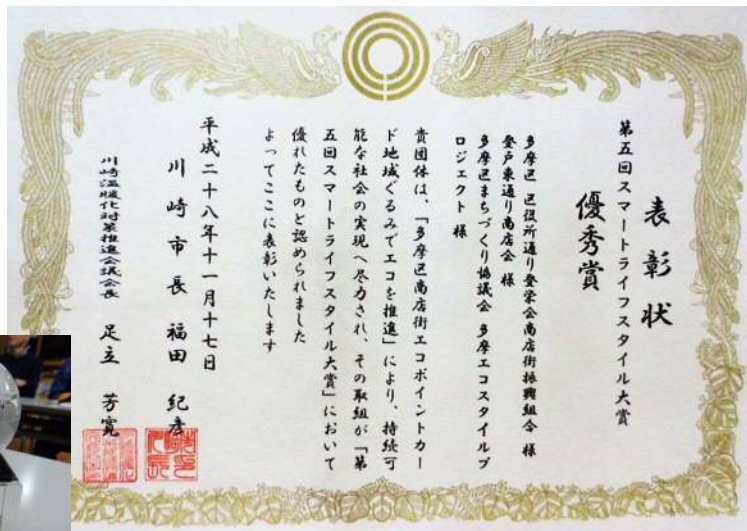 表彰状
第五回スマートライフスタイル大賞
優秀賞
多摩区 区役所通り登栄会商店街振興組合 様
登戸東通り商店会 様
多摩区まちづくり協議会 多摩エコスタイルプ
ロジェクト 様
貴団体は、「多摩区商店街エコポイントカー
ド地域ぐるみでエコを推進」により、持続可
能な社会の実現へ尽力され、その取組が「第
五回スマートライフスタイル大賞」において
優れたものと認められました
よってここに表彰いたします
平成二十八年十一月十七日
川崎市長 福田 紀彦
川崎温暖化対策推進会議会長 足立 芳寛